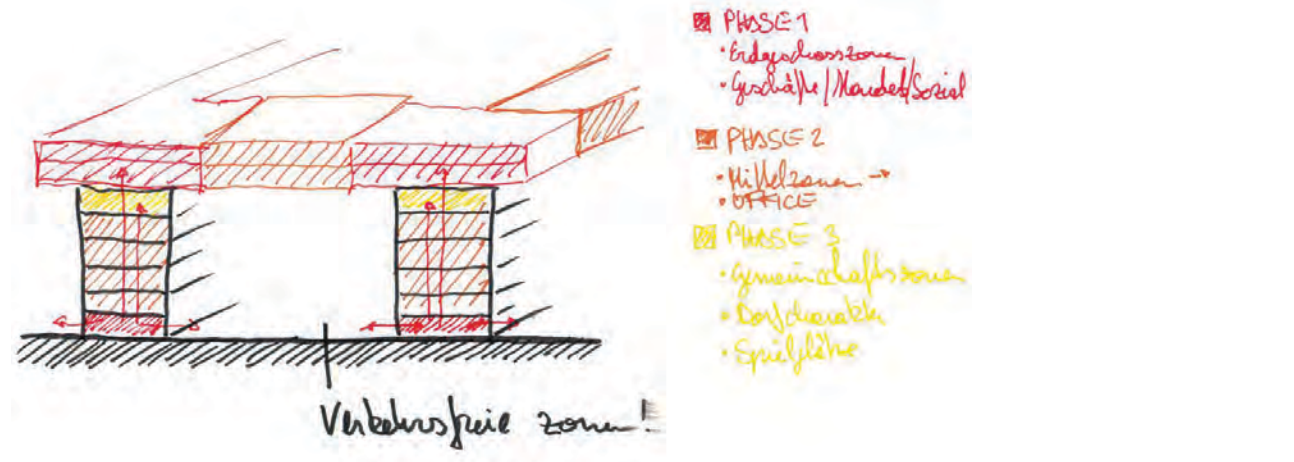 PHASE 1
• Erdgeschosszonen
• Geschäfte/Handel/Sozial
PHASE 2
• Mittelzonen →
• OFFICE
PHASE 3
• Gemeinschaftszonen
• Dorfcharakter
• Spielplätze
Verkehrsfreie Zonen!